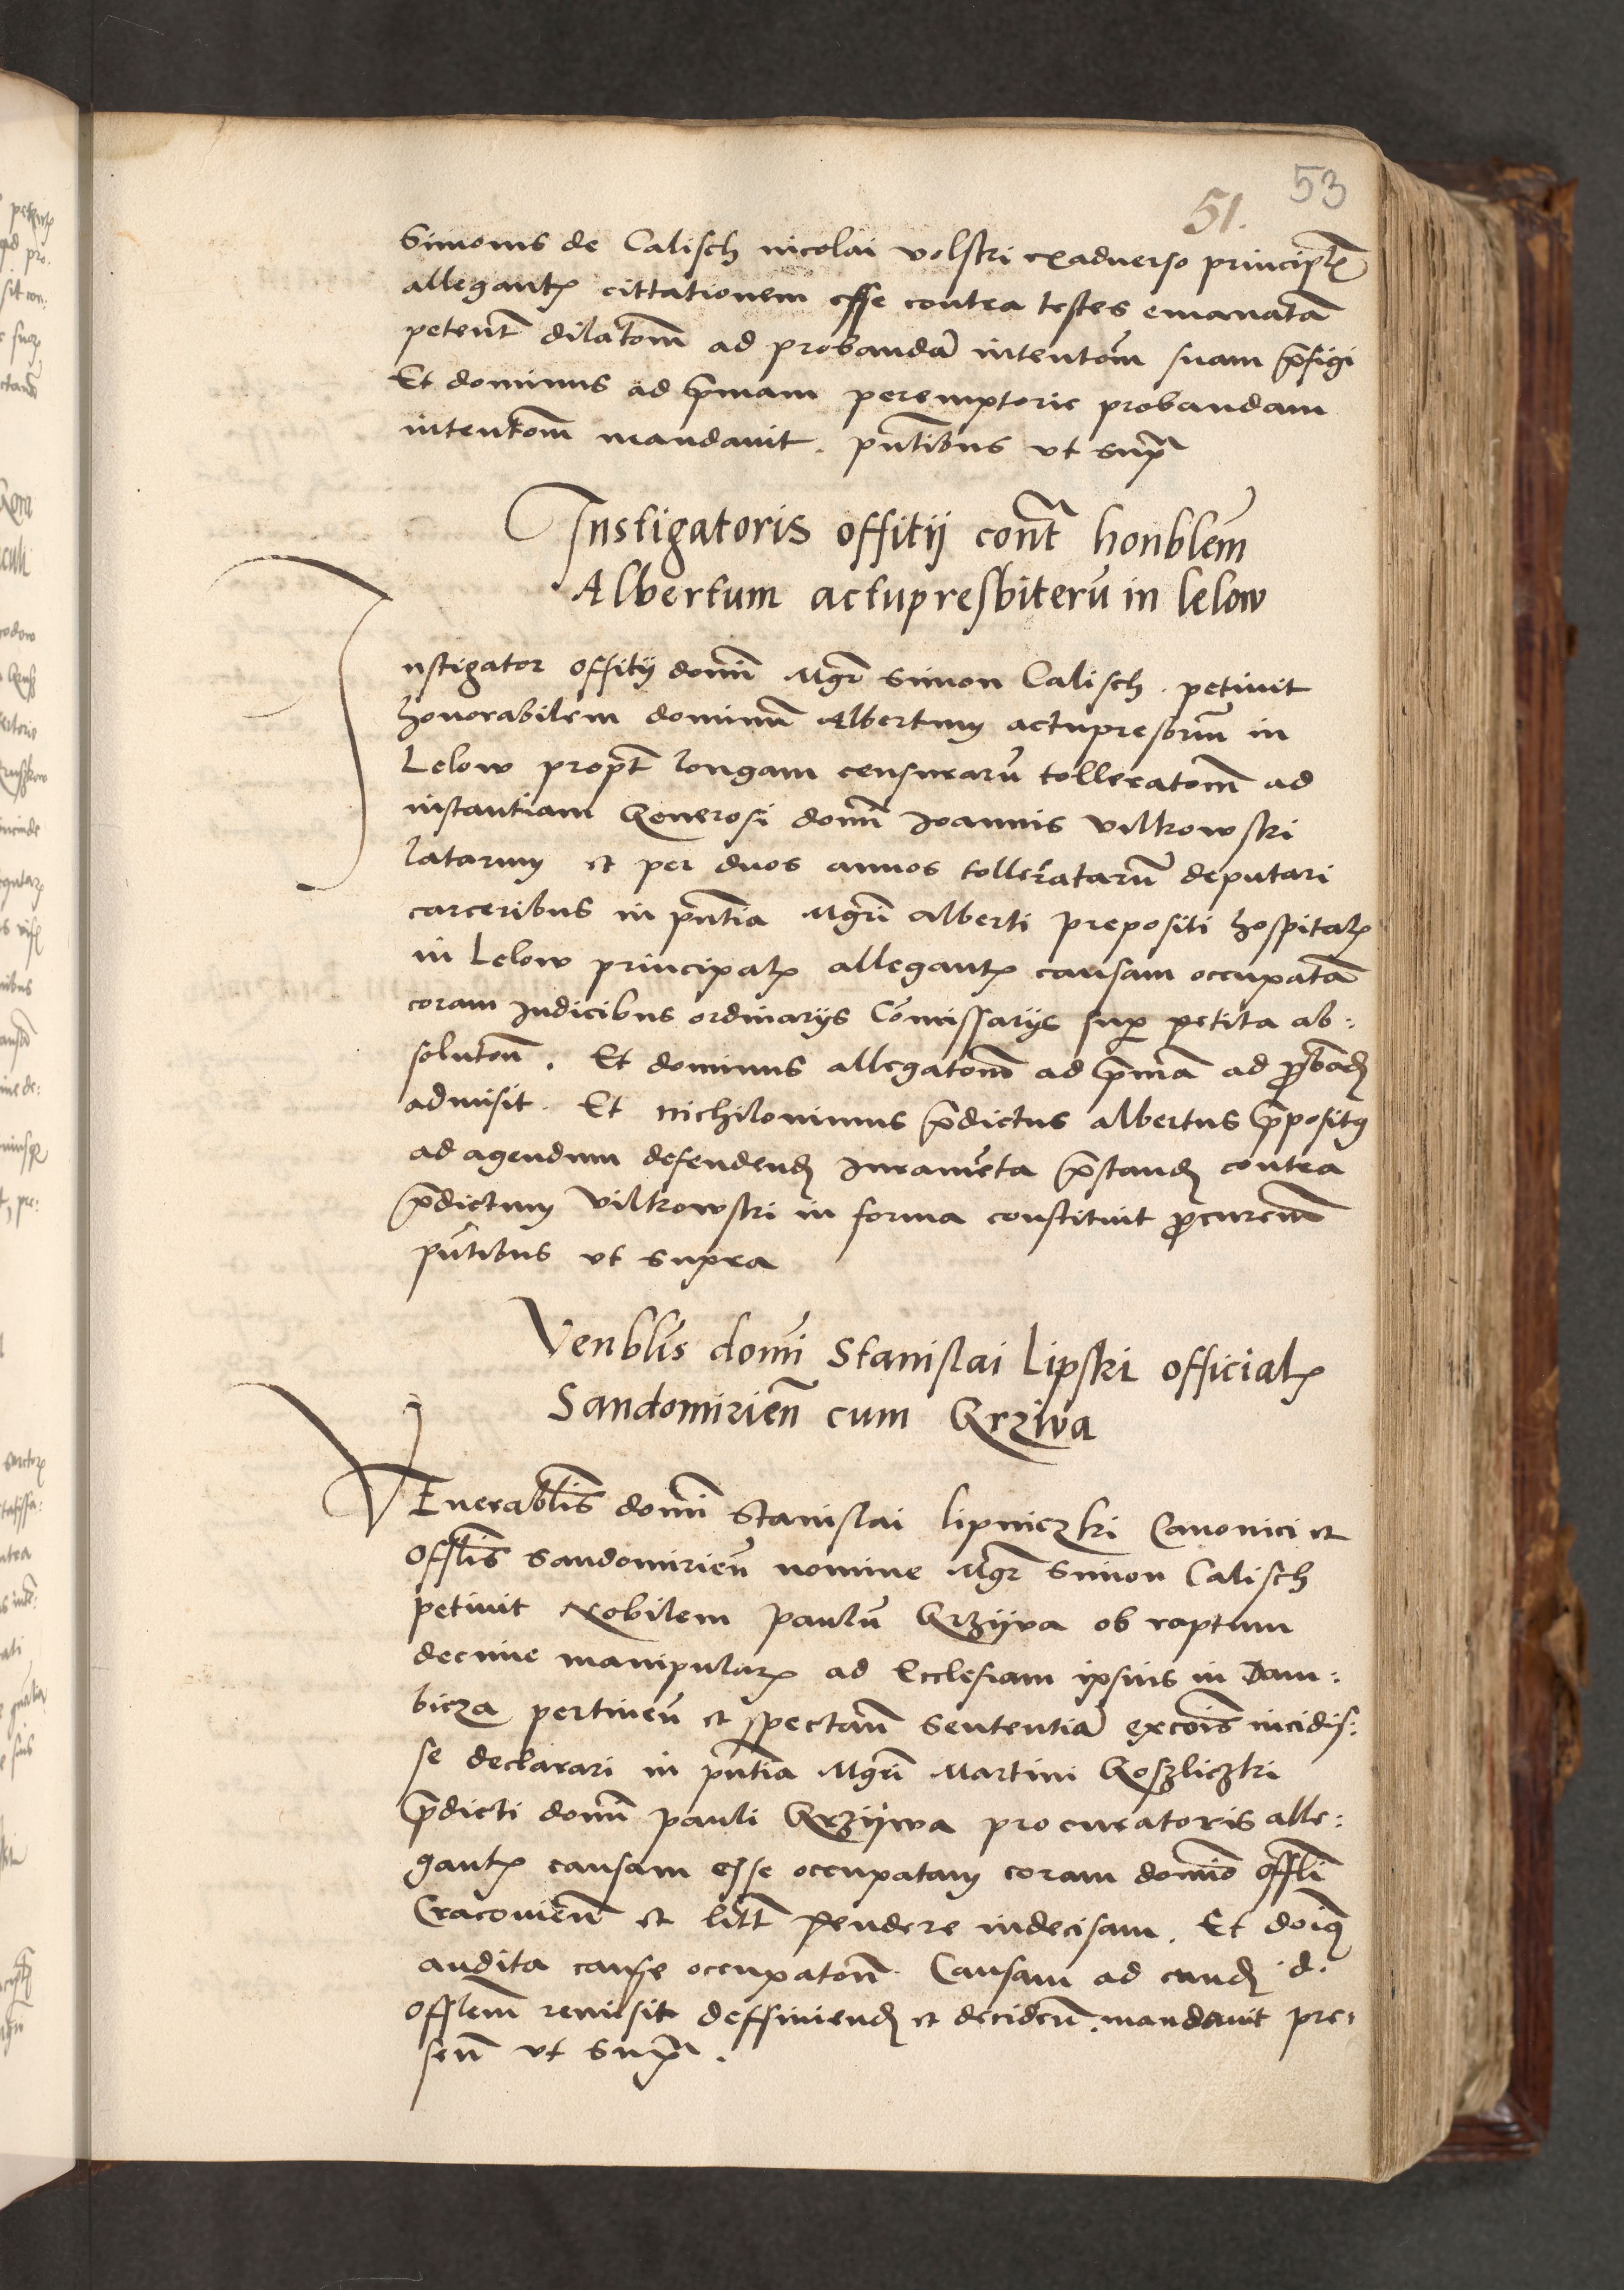 53
51.
Simonis de Calisch nicolai volski exaduerso principłꝭ
allegantꝭ cittationem esse contra testes emanatā
petent̃ dilatom̃ ad probandā intentom̃ suam p̃figi
Et dominus ad p̃mam peremptorie probandam
intentom̃ mandauit. pñtibus vt sup̃
Instigatoris offitij cont̃ honblem̃
Albertum actupresbiterū in lelow
Instigator offitij domĩ Mgr̃ Simon Calisch. petiuit
honorabilem dominū Albertum actupresbrum̃ in
Lelow propt̃ longam censurarū tolleratom̃ ad
instantiam Generosi domĩ Joannis vilkowski
latarum et per duos annos tolleratarū deputari
carceribus in pñtia Mgrĩ alberti prepositi hospitalꝭ
in Lelow principalꝭ allegantꝭ causam occupatā
coram Judicibus ordinarijs Cõmissarijs sup̱ petita ab:
solutom̃. Et dominus allegatom̃ ad p̃mā ad ꝓbãdꝭ
admisit. Et nichilominus p̃dictus albertus p̃posit9
ad agendum defendendꝭ Juramẽta p̃standꝭ contra
p̃dictum vilkowski in forma constituit ꝓcurem̃
pñtibus vt supra
Venblis̃ domĩ Stanislai Lipski officialꝭ
Sandomirien̄ cum Krziva
VEnerablis̃ domĩ Stanislai lipniczki Canonici et
Offlis̃ Sandomirien̄ nomine Mgr̃ Simon Calisch
petiuit Nobilem paulū Krzijva ob raptum
decime manipularꝭ ad Ecclesiam ipsius in Dam:
bicza pertinen̄ et spectan̄ sententiā excoĩs incidis:
se declarari in pñtia Mgrĩ Martini Koszliczki
p̃dicti domĩ pauli Krzijwa procuratoris alle:
gantꝭ causam esse occupatam coram domĩo offli̇̃
Cracouien̄ et litt̃ pendere indecisam. Et doĩꝯ
audita cause occupatom̃. Causam ad eundꝭ .d.
Offlem̃ remisit deffiniendꝭ et deciden̄. mandauit pre:
sen̄ vt sup̃.